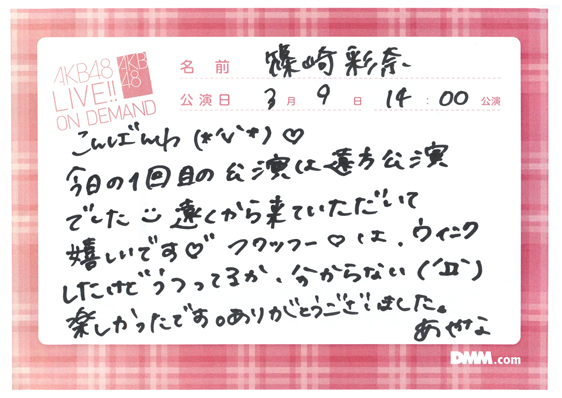 AKB48
LIVE!!
ON DEMAND
AKB
48
名前 篠崎彩奈
公演日 3月9日 14:00 公演
こんばんわ (*'v'*) ♡
今日の1回目の公演は遠方公演
でした 遠くから来ていただいて
嬉しいです♡ フワッフー♡は、ウィンク
したけどうつってるか、分からない(´Д`)
楽しかったです。ありがとうございました。
あやな
DMM.com